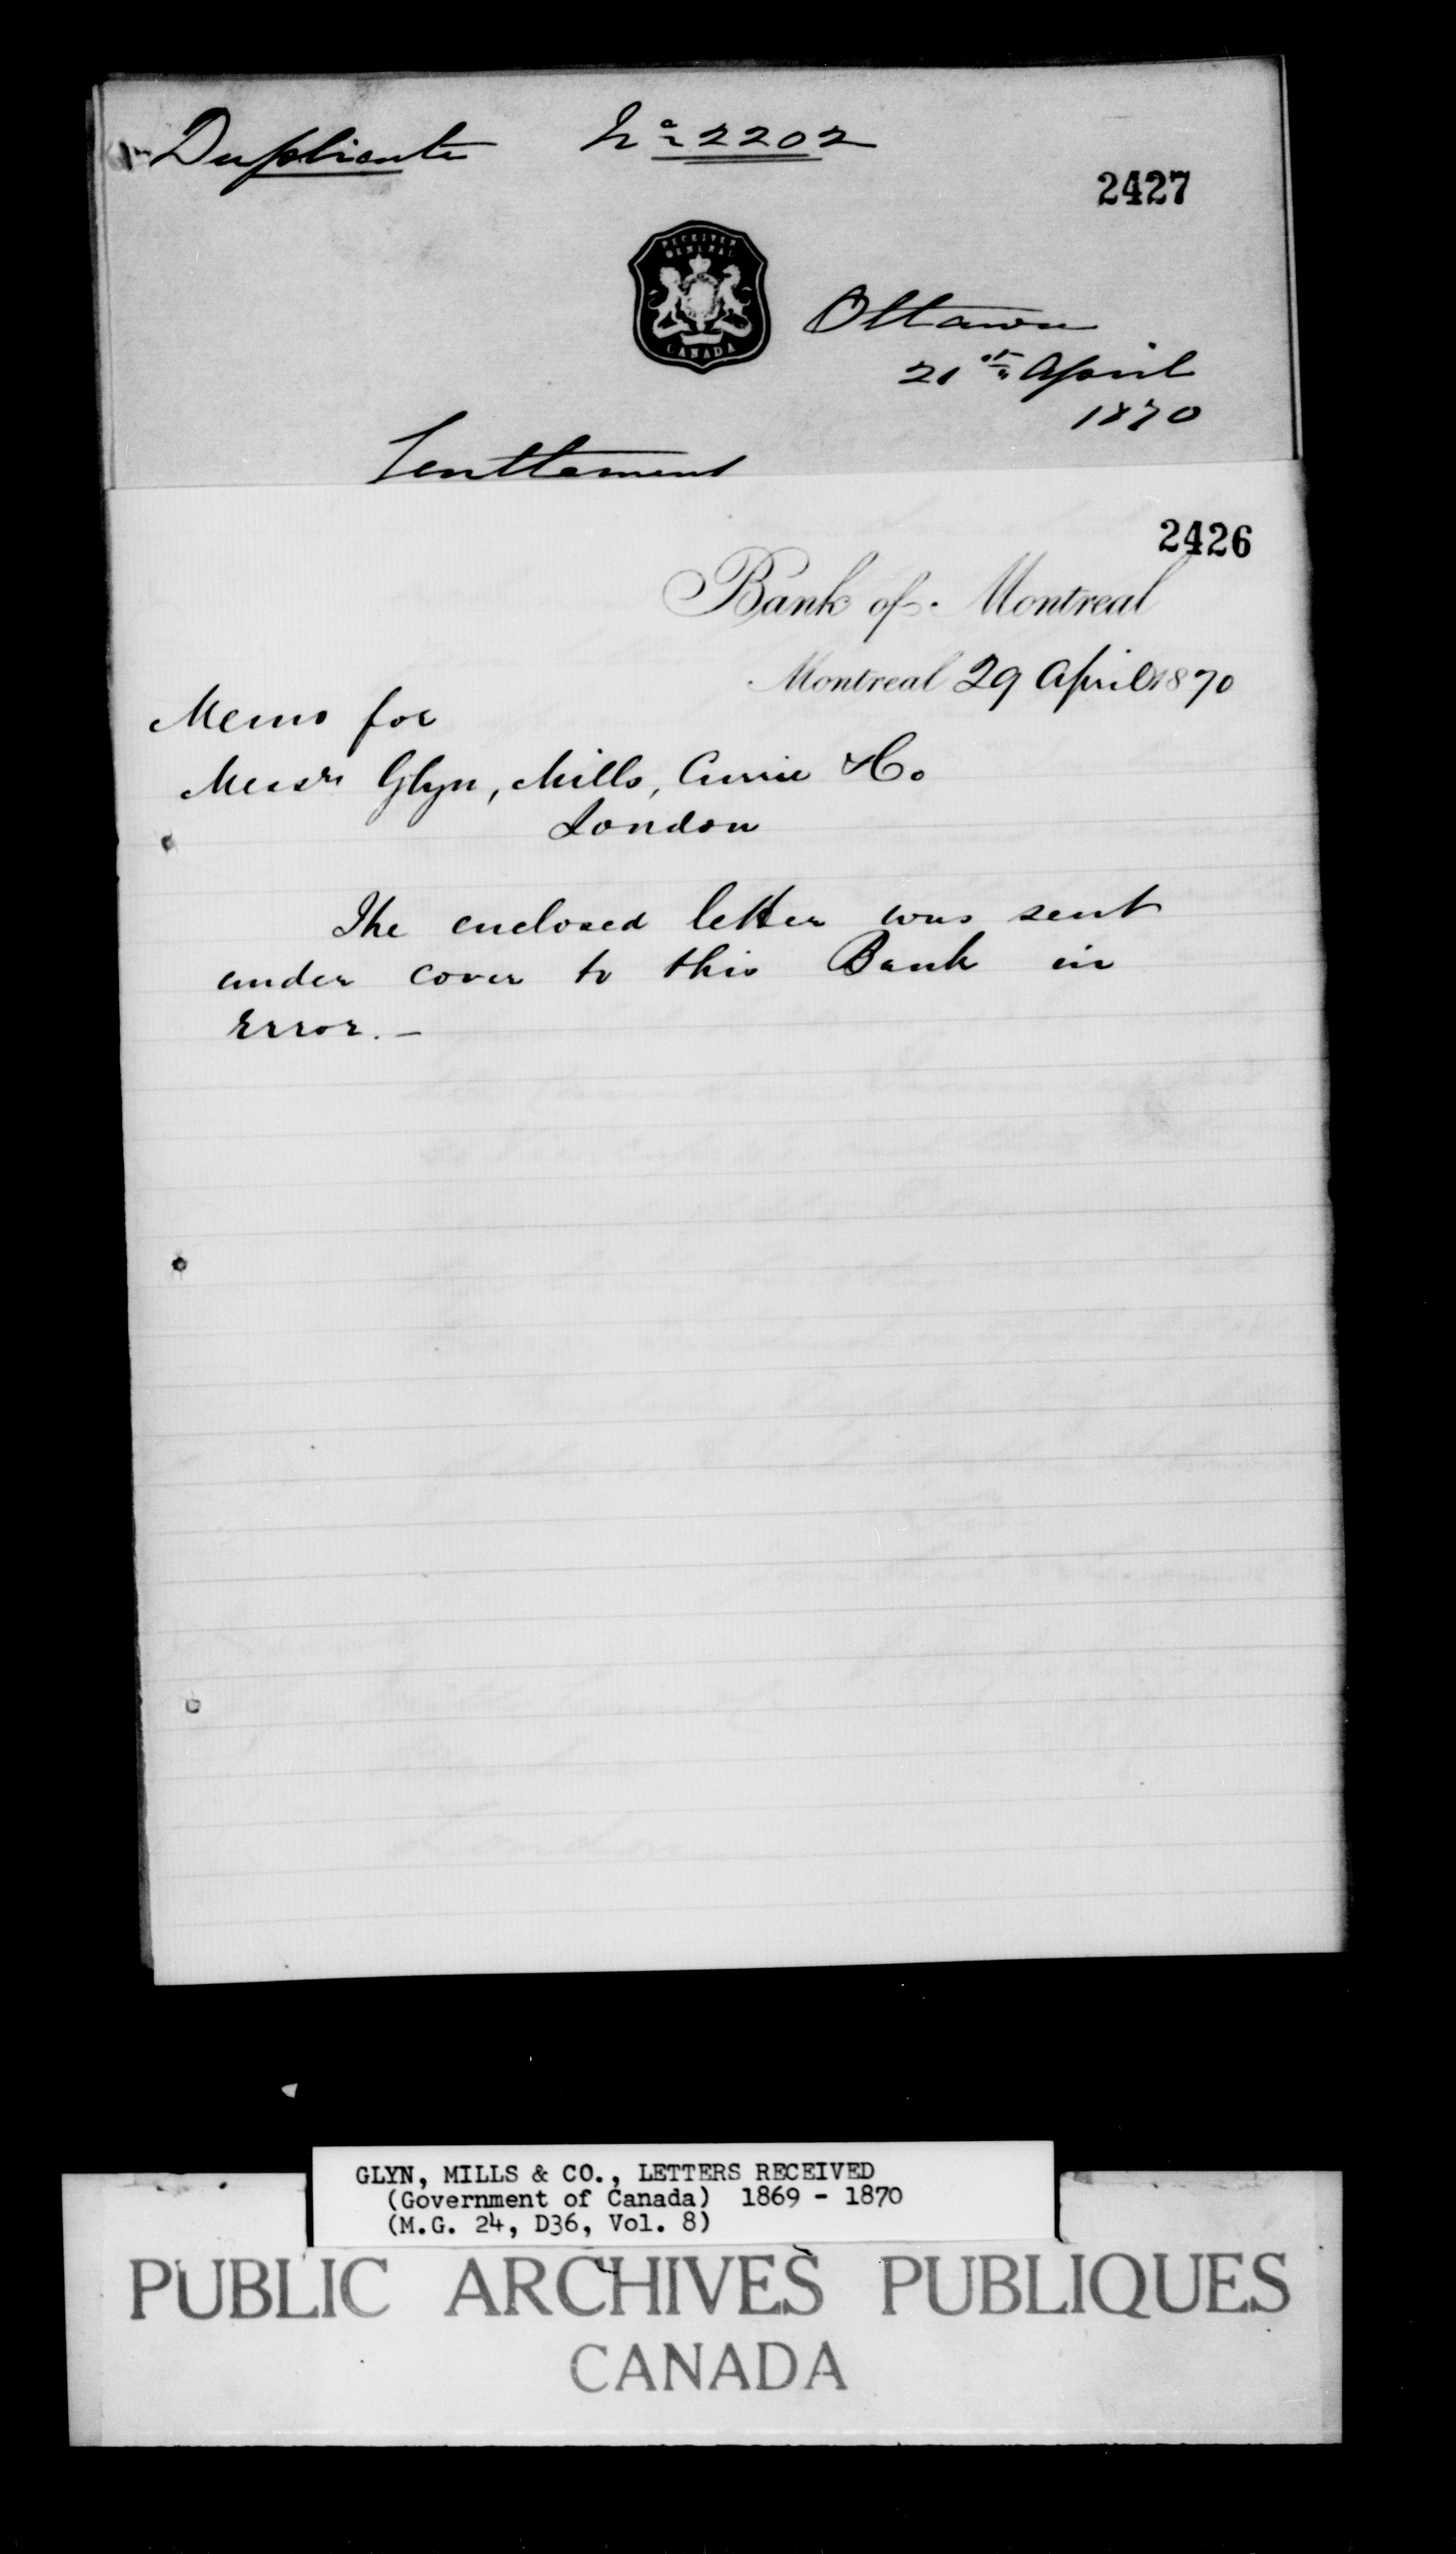 Duplicate No 2202
2427
RECEIVER
GENERAL
CANADA
Ottawa
21st April
1870
Gentlemen
2426
Bank of Montreal
Montreal 29 April 1870
Memo for
Messrs Glyn, Mills, Currie & Co
London
The enclosed letter was sent
under cover to this Bank in
Error. —
GLYN, MILLS & CO., LETTERS RECEIVED
(Government of Canada) 1869 - 1870
(M.G. 24, D36, Vol. 8)
PUBLIC ARCHIVES PUBLIQUES
CANADA